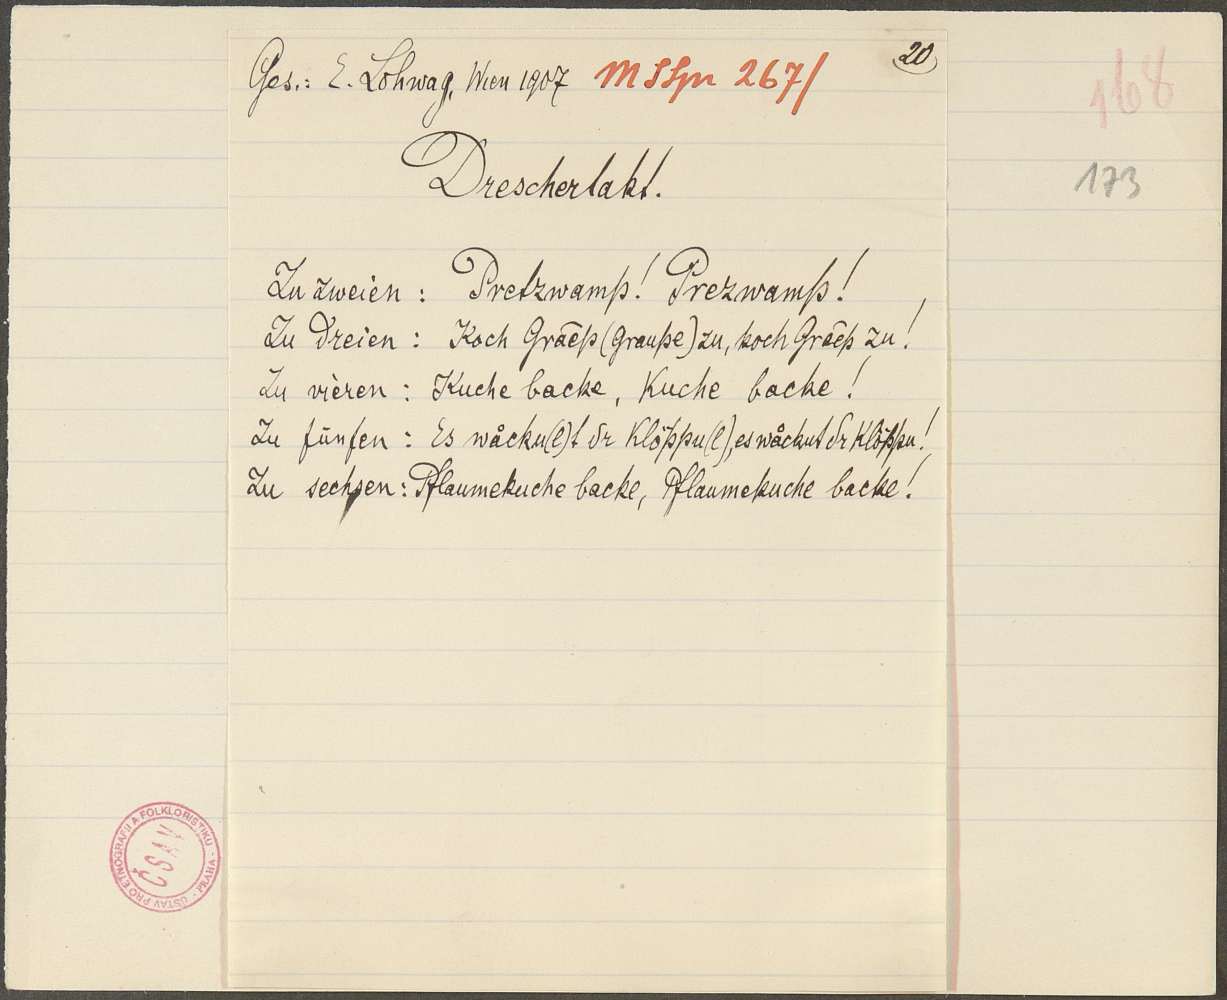 Ges.: E. Lohwag, Wien 1907 20
168
Dreschertakt.
173
Zu zweien: Pretzwamß! Prezwamß!
Zu dreien: Koch Gräēß (Graupe) zu, koch Gräēß zu!
Zu vieren: Kuche backe, Kuche backe!
Zu fünfen: Es wåcku(l)t dr Klöppu(l), es wåckut dr Klöppu!
Zu sechsen: Pflaumekuche backe, Pflaumekuche backe!
ÚSTAV PRO ETNOGRAFII A FOLKLORISTIKU - PRAHA -
ČSAV